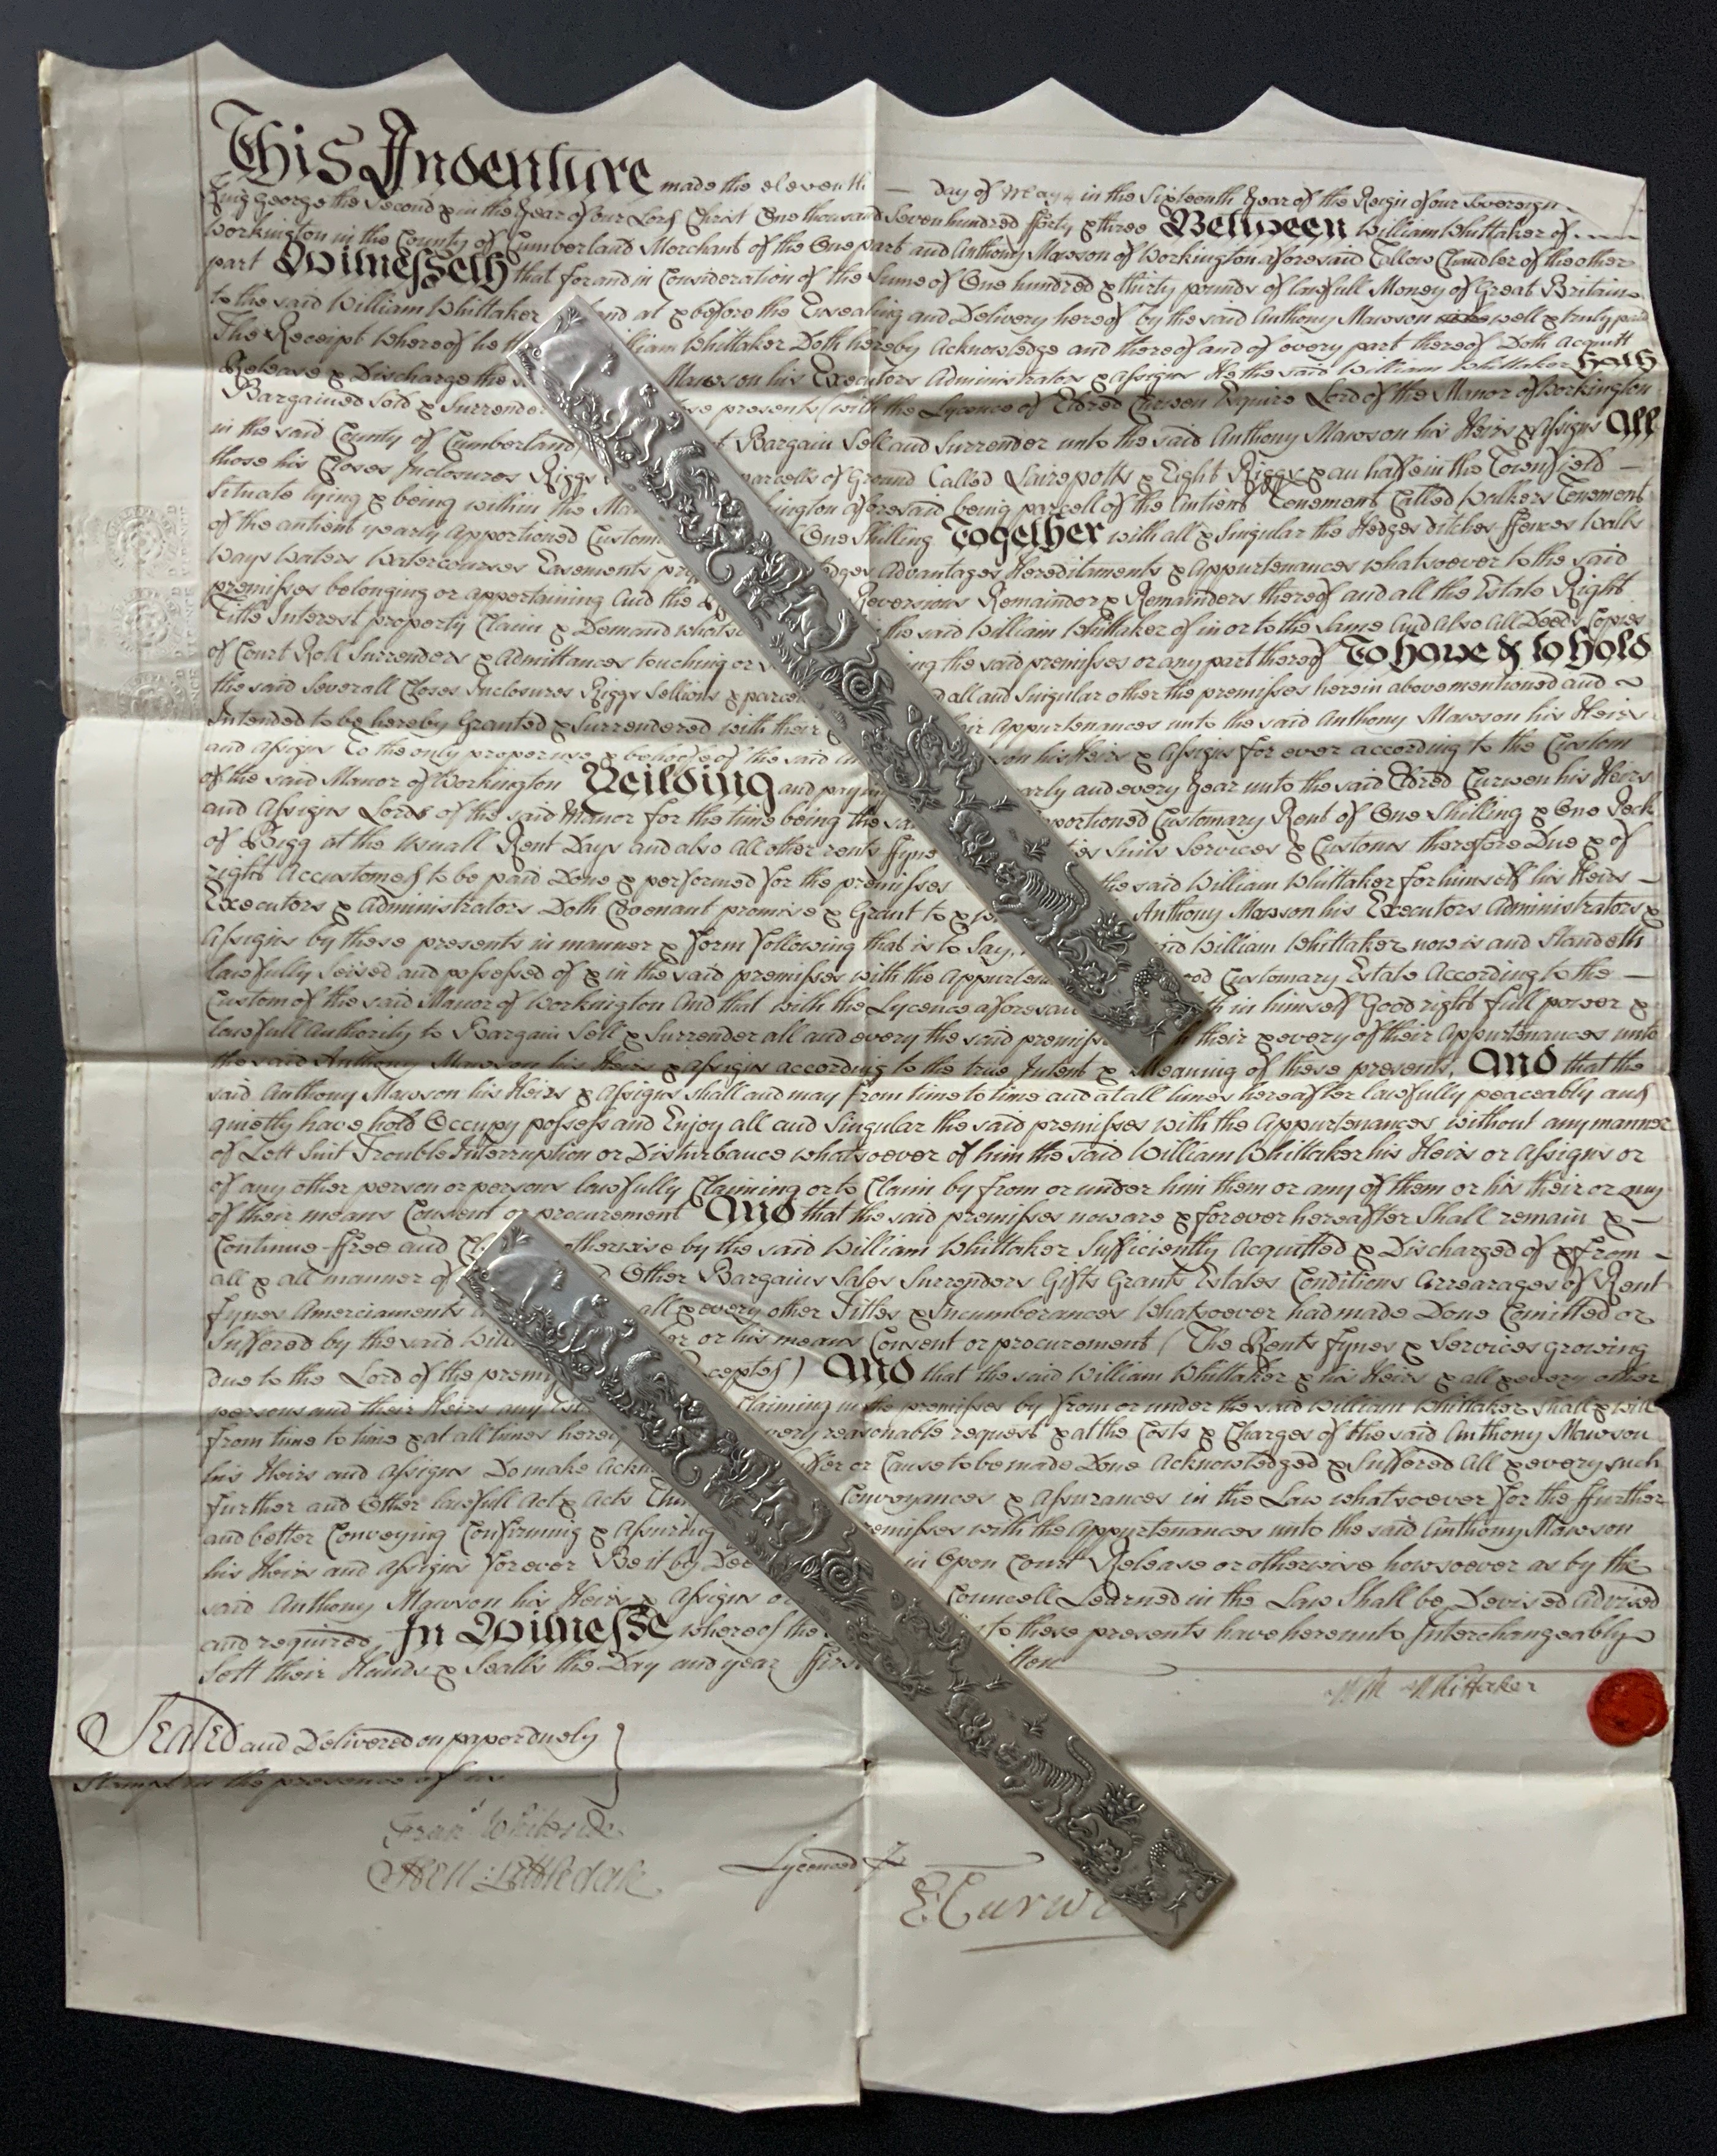 This Indenture made the eleventh — day of May in the Sixteenth Year of the Reign of our Sovereign
King George the Second & in the Year of our Lord Christ One thousand Seven hundred fforty & three Between William Whittaker of
Workington in the County of Cumberland Merchant of the One part and Anthony Mawson of Workington aforesaid Tallow Chandler of the other
part Witnesseth that for and in Consideration of the Sume of One hundred & thirty pounds of lawfull Money of Great Britain
to the said William Whittaker and at & before the Ensealing and Delivery hereof by the said Anthony Mawson well & truly paid
The Receipt whereof he th William Whittaker Doth hereby Acknowledge and thereof and of every part thereof Doth Acquitt
Release & Discharge the s Mawson his Executors Administrators & Assigns He the said William Whittaker Hath
Bargained Sold & Surrender these presents (with the Lycence of Eldred Curwen Esquire Lord of the Manor of Workington
in the said County of Cumberland) Bargain Sell and Surrender unto the said Anthony Mawson his Heirs & Assigns All
those his Closes Inclosures Riggs parcells of Ground Called Lairepotts & Eight Riggs & an halfe in the Townfield —
Situate lying & being within the Ma kington aforesaid being parcell of the Antient Tenement Called Walkers Tenement
of the antient yearly Apportioned Custom One Shilling Together with all & Singular the Hedges ditches ffences Walls
Ways Waters Watercourses Easements pr edges Advantages Hereditaments & Appurtenances whatsoever to the said
premisses belonging or appertaining And the Reversions Remainder & Remainders thereof and all the Estate Right
Title Interest property Claim & Demand whats the said William Whittaker of in or to the Same And also All Deeds Copies
of Court Roll Surrenders & Admittances touching or ing the said premisses or any part thereof To have & to hold
the said Severall Closes Inclosures Riggs Sellions & parce d all and Singular other the premisses herein above mentioned and
Intended to be hereby Granted & Surrendered with their eir Appurtenances unto the said Anthony Mawson his Heirs
and Assigns To the only proper use & behoofe of the said An on his Heirs & Assigns for ever according to the Custom
of the said Manor of Workington Yeilding and payin arly and every Year unto the said Eldred Curwen his Heirs
and Assigns Lords of the said Manor for the time being the sa portioned Customary Rent of One Shilling & One Peck
of Bigg at the Usuall Rent Days and also All other rents ffyne ties Suits Services & Customs therefore Due & of
right Accustomed to be paid Done & performed for the premisses the said William Whittaker for himself his Heirs —
Executors & Administrators Doth Covenant promise & Grant to & w Anthony Mawson his Executors Administrators &
Assigns by these presents in manner & form following that is to Say, aid William Whittaker now is and Standeth
lawfully Seised and possessed of & in the said premisses with the Appurten ood Customary Estate According to the —
Custom of the said Manor of Workington And that with the Lycence aforesai th in himself Good right full power &
lawfull Authority to Bargain Sell & Surrender all and every the said premiss their & every of their Appurtenances unto
the said Anthony Mawson his Heirs & Assigns according to the true Intent & Meaning of these presents, And that the
said Anthony Mawson his Heirs & Assigns Shall and may from time to time and at all times hereafter lawfully peaceably and
quietly have hold Occupy possess and Enjoy all and Singular the said premisses with the Appurtenances without any manner
of Lett Suit Trouble Interruption or Disturbance whatsoever of him the said William Whittaker his Heirs or Assigns or
of any other person or persons lawfully Claiming or to Claim by from or under him them or any of them or his their or any
of their means Consent or procurement And that the said premisses now are & forever hereafter Shall remain & —
Continue ffree and otherwise by the said William Whittaker Sufficiently Acquitted & Discharged of & from —
all & all manner of d Other Bargains Sales Surrenders Gifts Grants Estates Conditions Arrearages of Rent
Fynes Amerciaments all & every other Titles & Incumberances Whatsoever had made Done Comitted or
Suffered by the said Will er or his means Consent or procurement (The Rents fynes & Services growing
due to the Lord of the premi cepted) And that the said William Whittaker & his Heirs & all & every other
persons and their Heirs any Est Claiming in the premisses by from or under the said William Whittaker Shall & will
from time to time & at all times here very reasonable request & at the Costs & Charges of the said Anthony Mawson
his Heirs and Assigns Do make Ackn uffer or Cause to be made Done Acknowledged & Suffered All & every such
further and Other lawfull Act & Acts Thin Conveyances & Assurances in the Law whatsoever for the ffurther
and better Conveying Confirming & Assuring remisses with the Appurtenances unto the said Anthony Mawson
his Heirs and Assigns forever Be it by Dee in Open Court Release or otherwise howsoever as by the
said Anthony Mawson his Heirs & Assigns or Councell Learned in the Law Shall be Devised Advised
and required, In Witnesse whereof the to these presents have hereunto Interchangeably
Sett their Hands & Sealls the Day and year ffirst tten
Wm Whittaker
Sealed and Delivered on paper duely
Stampt in the presence of us
Fran Whiteside
Littledale
Lycenced
E Curwe